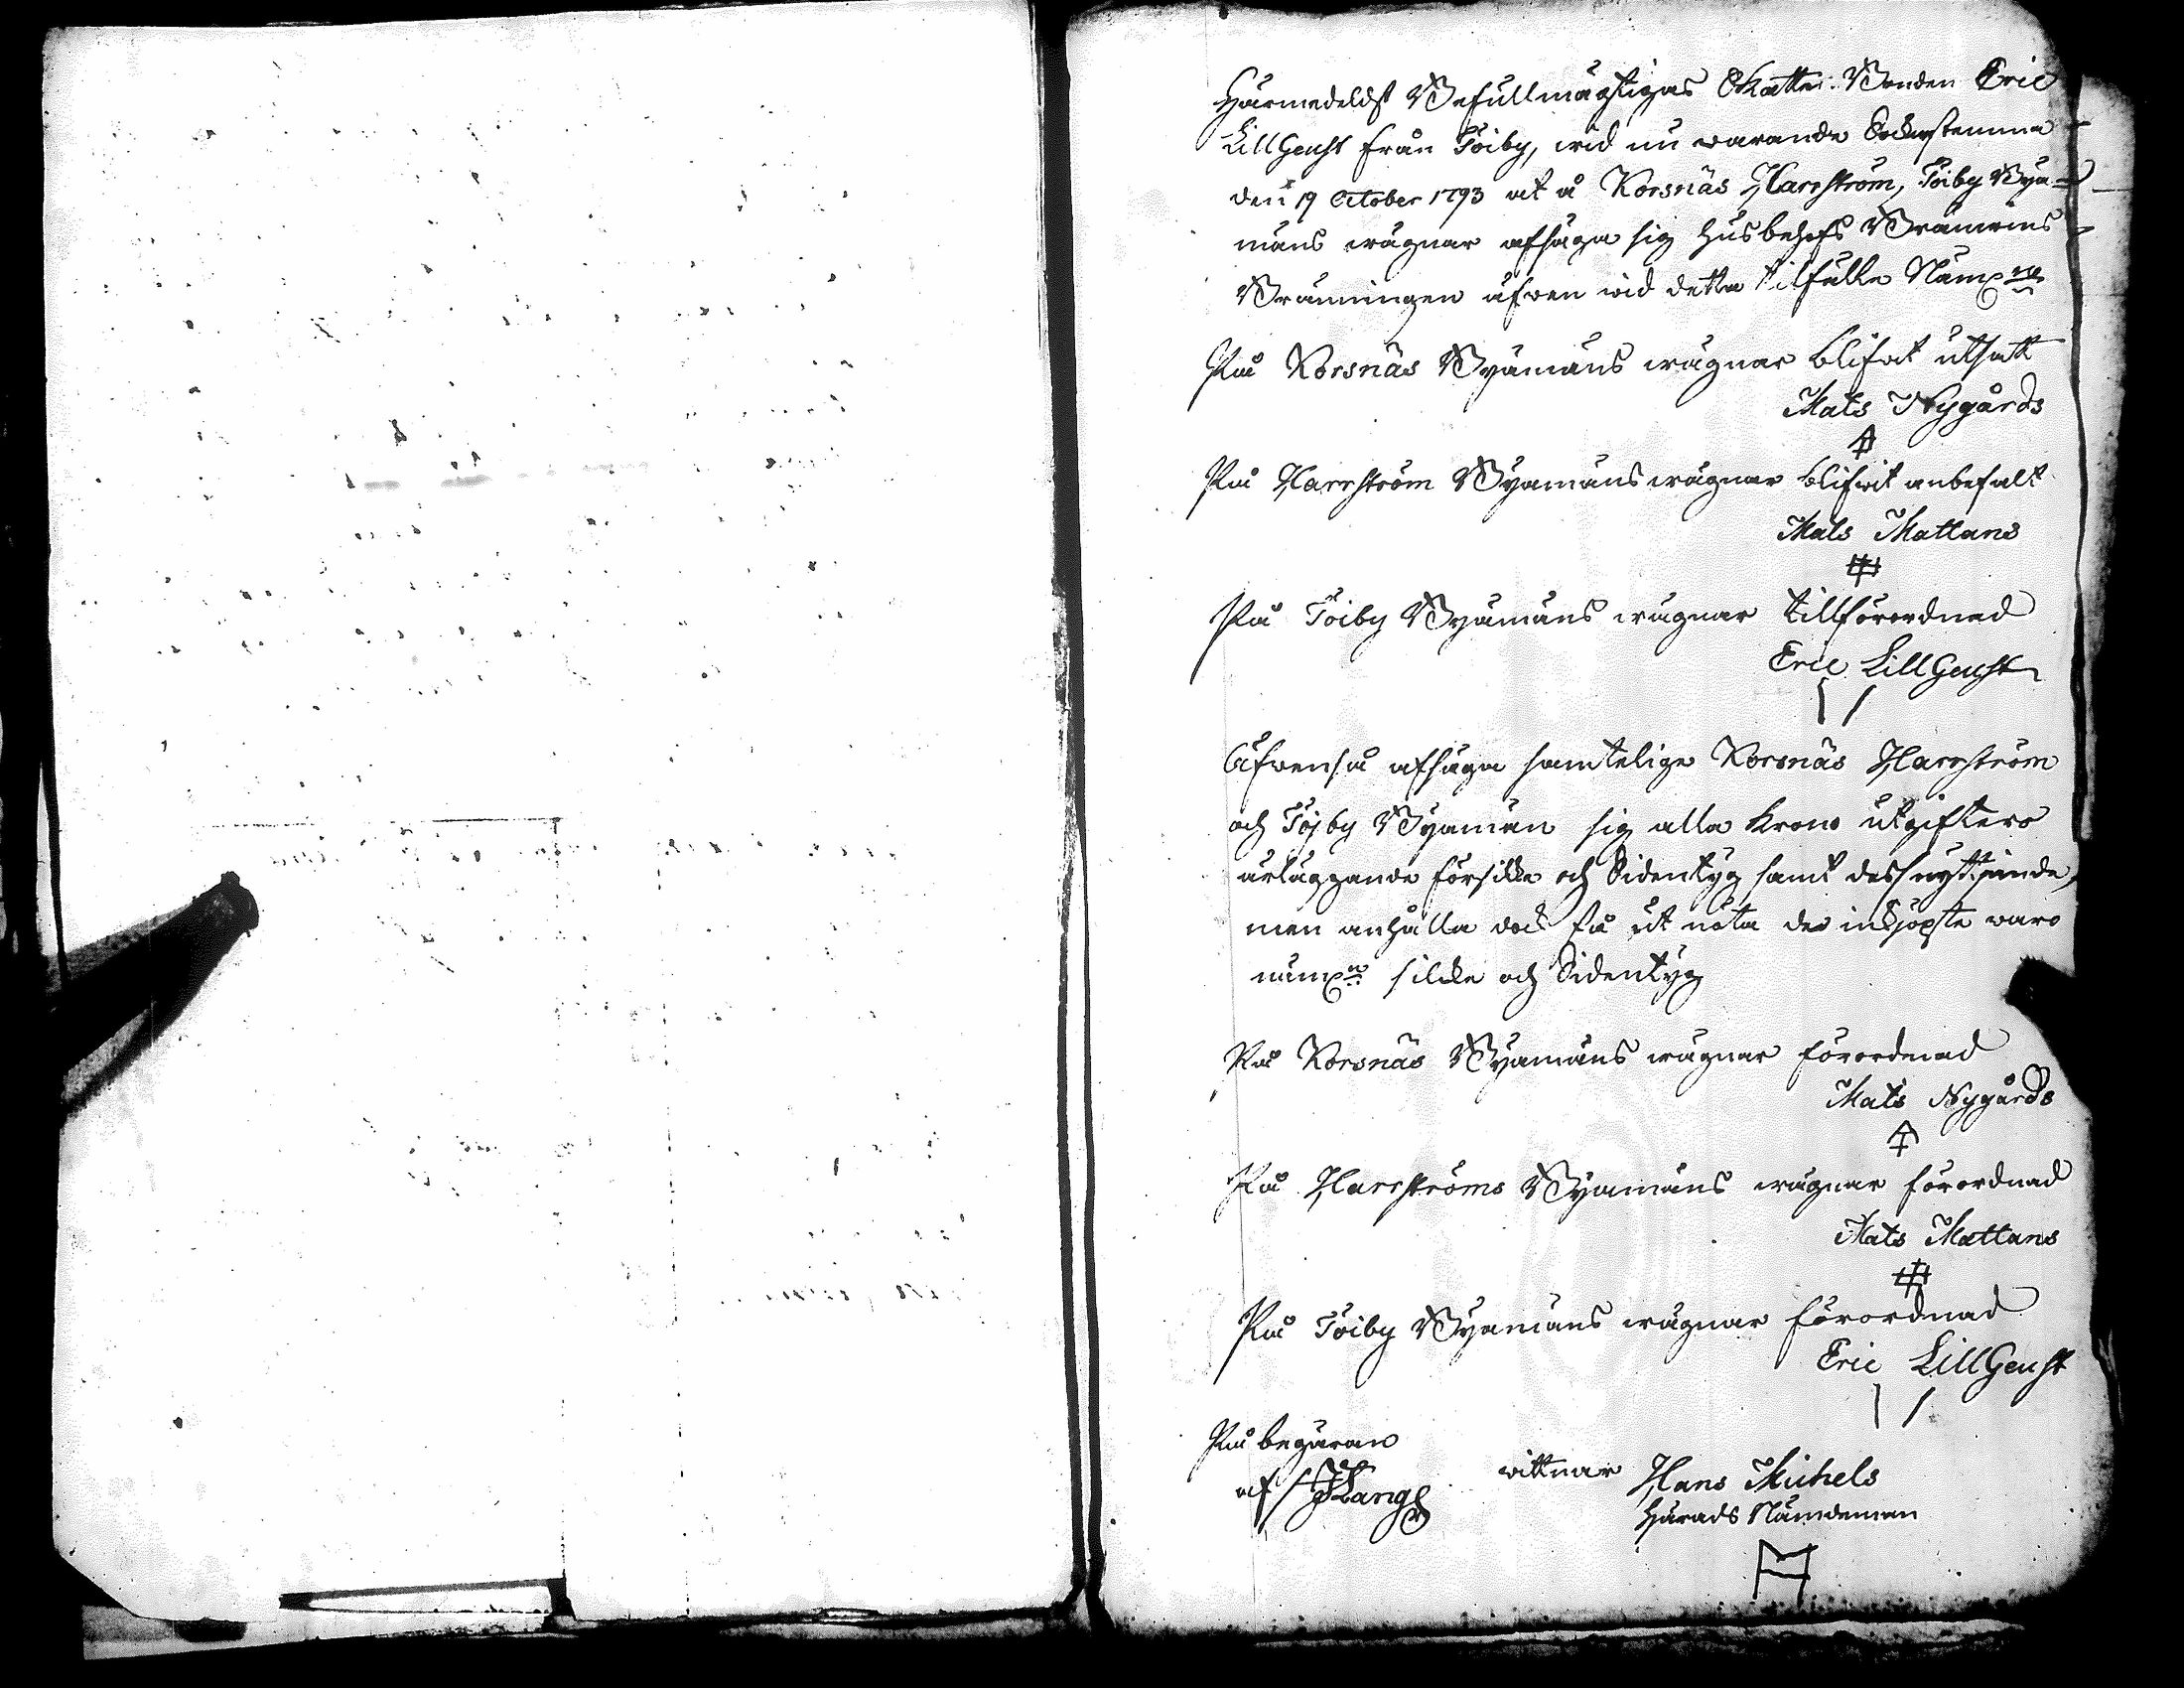 Härmedelst Befullmägtigas Skatte-Bonden Eric
LillGeust från Töiby, wid nu warande Sockenstemma
den 19 October 1793 at å Korsnäs Harrström, Töiby Bya-
mäns wägnar afsäga sig husbehofs Brännvins
Bränningen äfwen wid detta tilfälle
På Korsnäs Byamäns wägnar blifwit utsatt
Mats Nygårds
På Harrström Byamäns wägnar blifwit anbefalt
Mats Mattans
På Töiby Byamäns wägnar tillförordnad
Eric LillGeust
Äfwenså afsäga samtelige Korsnäs Harrström
och Töjby Byamän sig alla Krono utgifters
ärläggande för silke och Sidentyg samt dess nyttjande,
men anhålla dock få ut nöta de inkjöpte waro
silke och Sidentyg
På Korsnäs Byamäns wägnar förordnad
Mats Nygårds
På Harrströms Byamäns wägnar förordnad
Mats Mattans
På Töiby Byamäns wägnar förordnad
Eric LillGeust
På begäran
af wittnar Hans Michels
Härads Nämdeman